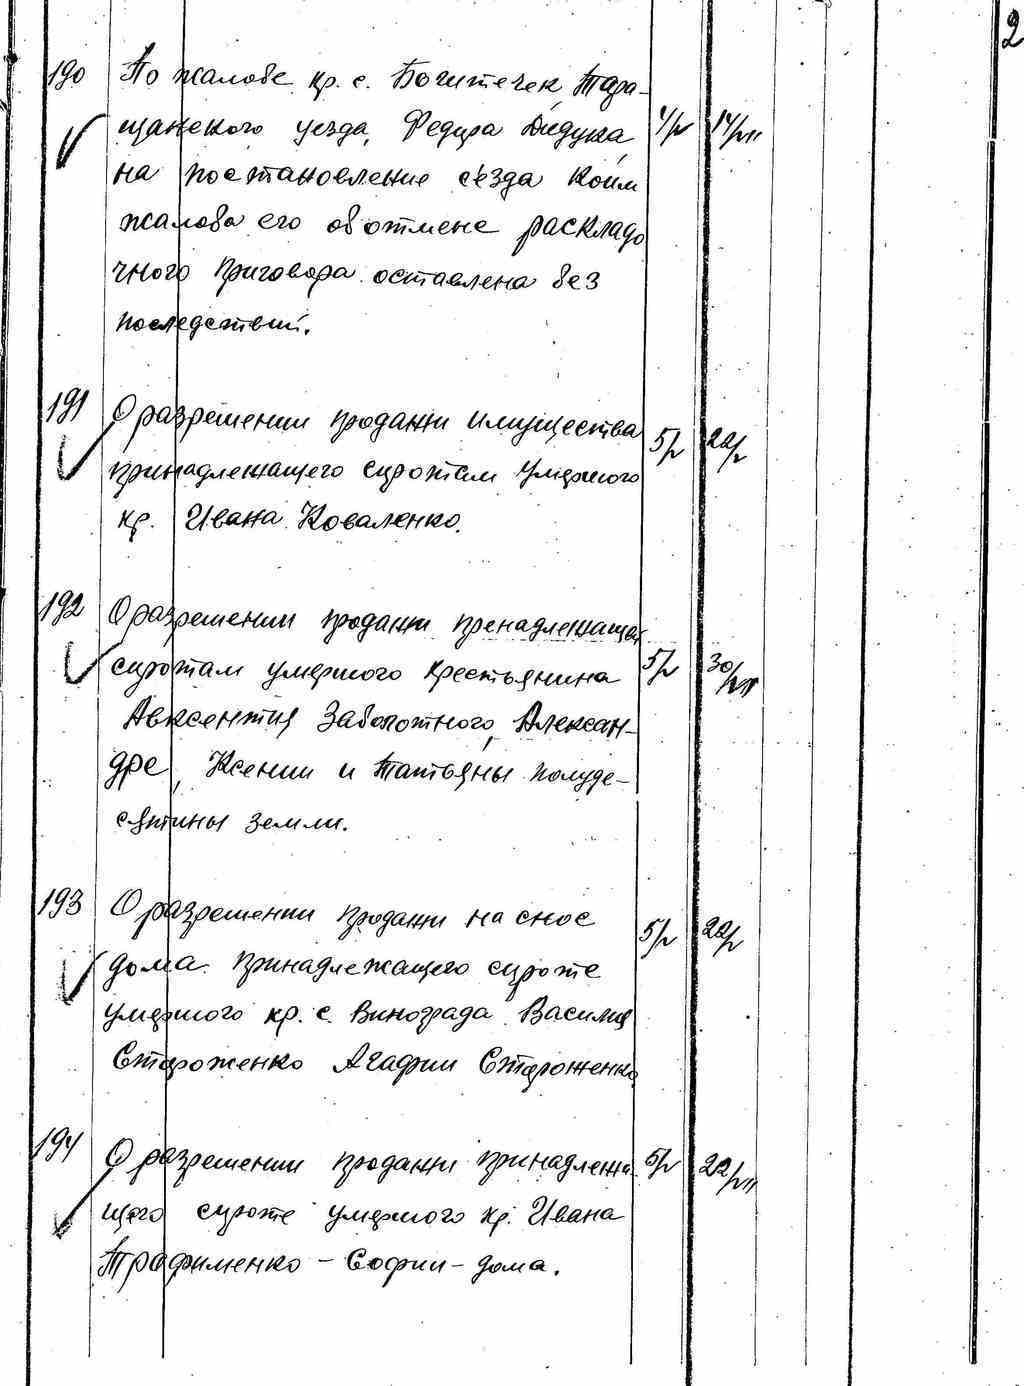 2
190 По жалобе кр. с. Бочитечек Тара-
щанского уезда, Федора Дидука
на постановление сезда коим
жалоба его об отмене расkладо
чного приговора оставлена без
последствий.
191 О разрешении продажи имущества 5/
принадлежащего сиротам умершого
кр. Ивана Коваленко.
192 О разрешении продажи пренадлежащей 5/ 30/
сиротам умершого крестьянина
Авксентия Заболотного, Алексан-
дре, Ксении и Татьяны полуде-
сятины земли.
193 О разрешении продажи на снос 5/
дома принадлежащего сироте
умершого кр. с. Винограда Василия
Стороженко Агафии Стороженко
194 О разрешении продажи принадлежа 5/ 22/
щего сироте умершого кр. Ивана
Трофименко - Софии - дома.